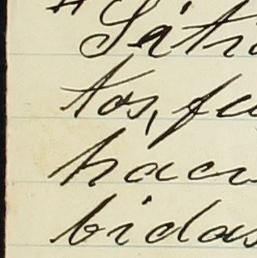 "Sáti
tos, fu
hacu
bidas